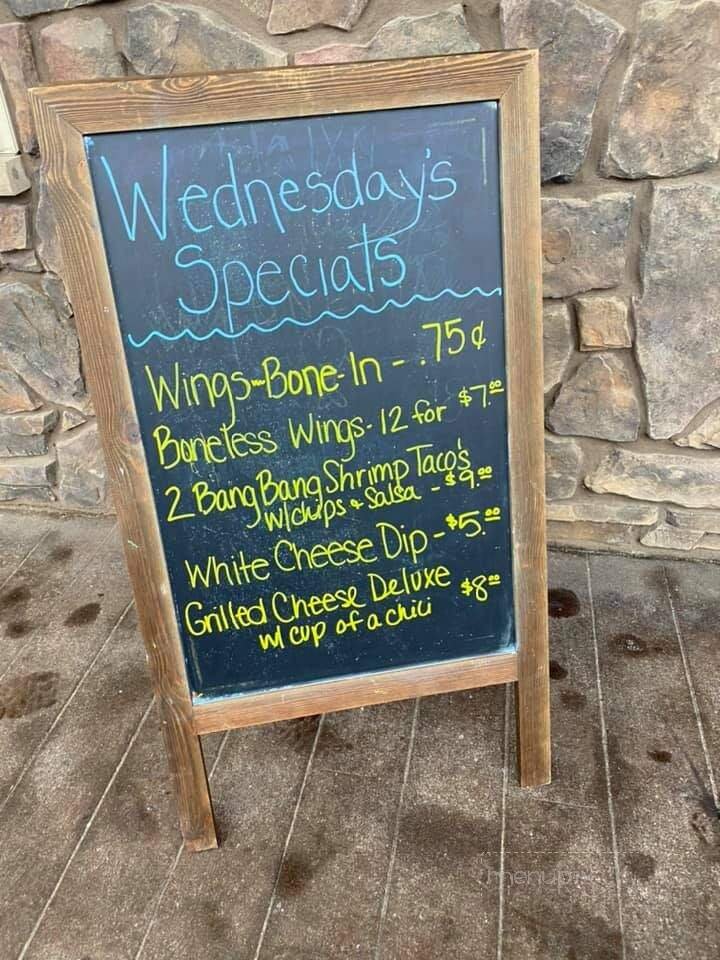 Wednesday's
Specials
Wings-Bone-In - .75¢
Boneless Wings - 12 for $7.00
2 Bang Bang Shrimp Taco's
w/chips & Salsa - $9.00
White Cheese Dip - $5.00
Grilled Cheese Deluxe $8.00
w/ cup of a chili
menupix